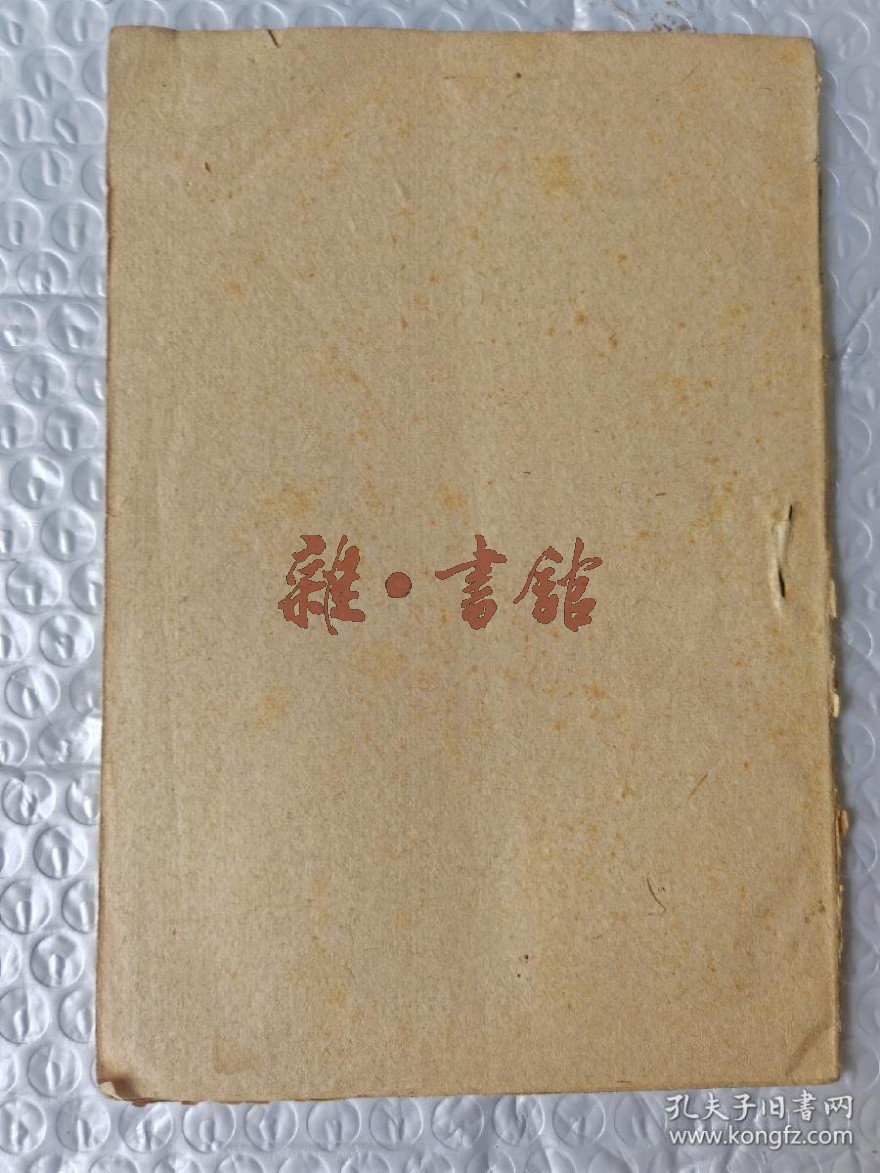 雜·書館
孔夫子旧書网
www.kongfz.com